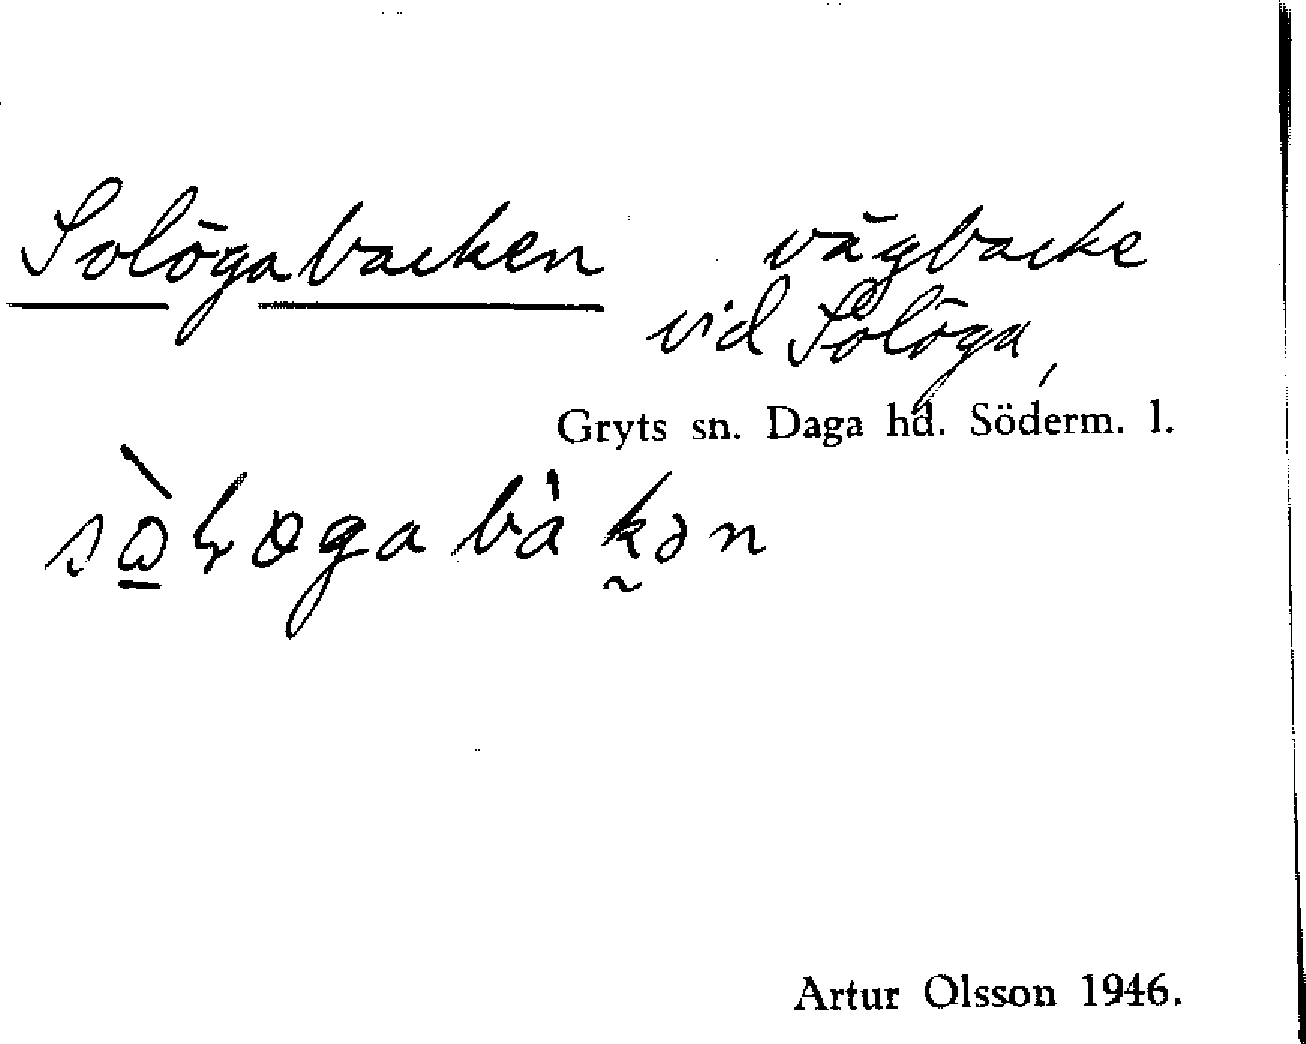 Solögabacken vägbacke
vid Solöga,
Gryts sn. Daga hd. Söderm. l.
Artur Olsson 1946.